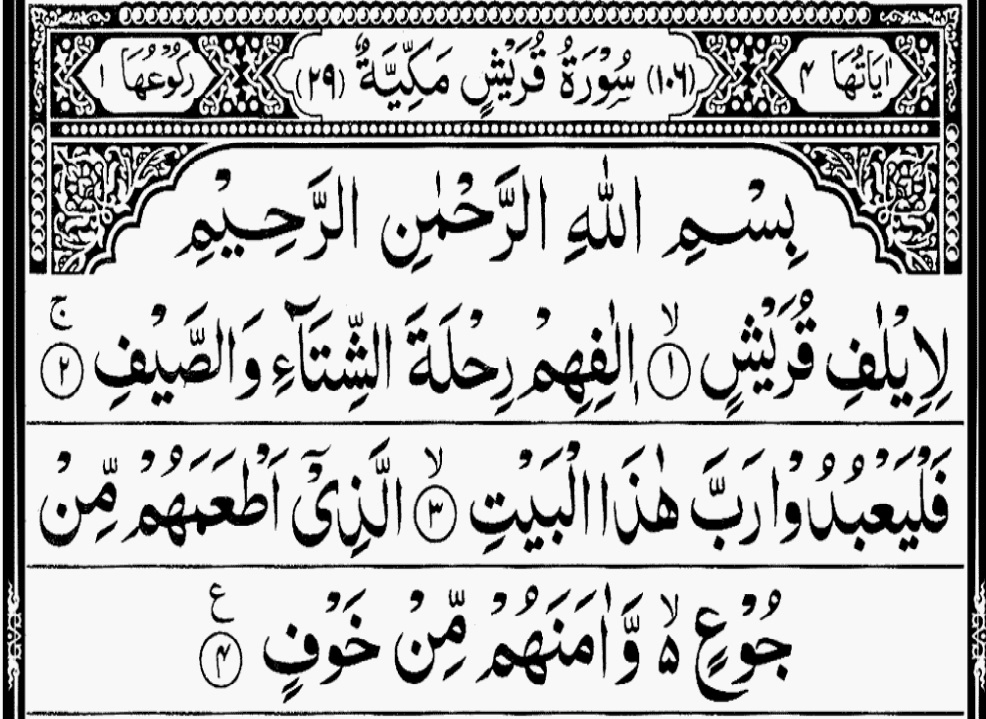 اٰيَاتُهَا ۴ (۱۰۶) سُوْرَةُ قُرَيْشٍ مَكِّيَّةٌ (۲۹) رُكُوْعُهَا ۱
بِسْمِ اللّٰهِ الرَّحْمٰنِ الرَّحِيْمِ
لِاِيْلٰفِ قُرَيْشٍ ۙ‏﴿۱﴾ اٖلٰفِهِمْ رِحْلَةَ الشِّتَآءِ وَالصَّيْفِ ۚ‏﴿۲﴾
فَلْيَعْبُدُوْا رَبَّ هٰذَا الْبَيْتِ ۙ‏﴿۳﴾ الَّذِيْۤ اَطْعَمَهُمْ مِّنْ
جُوْعٍ ۵ۙ وَّاٰمَنَهُمْ مِّنْ خَوْفٍ ﴿۴﴾ ع